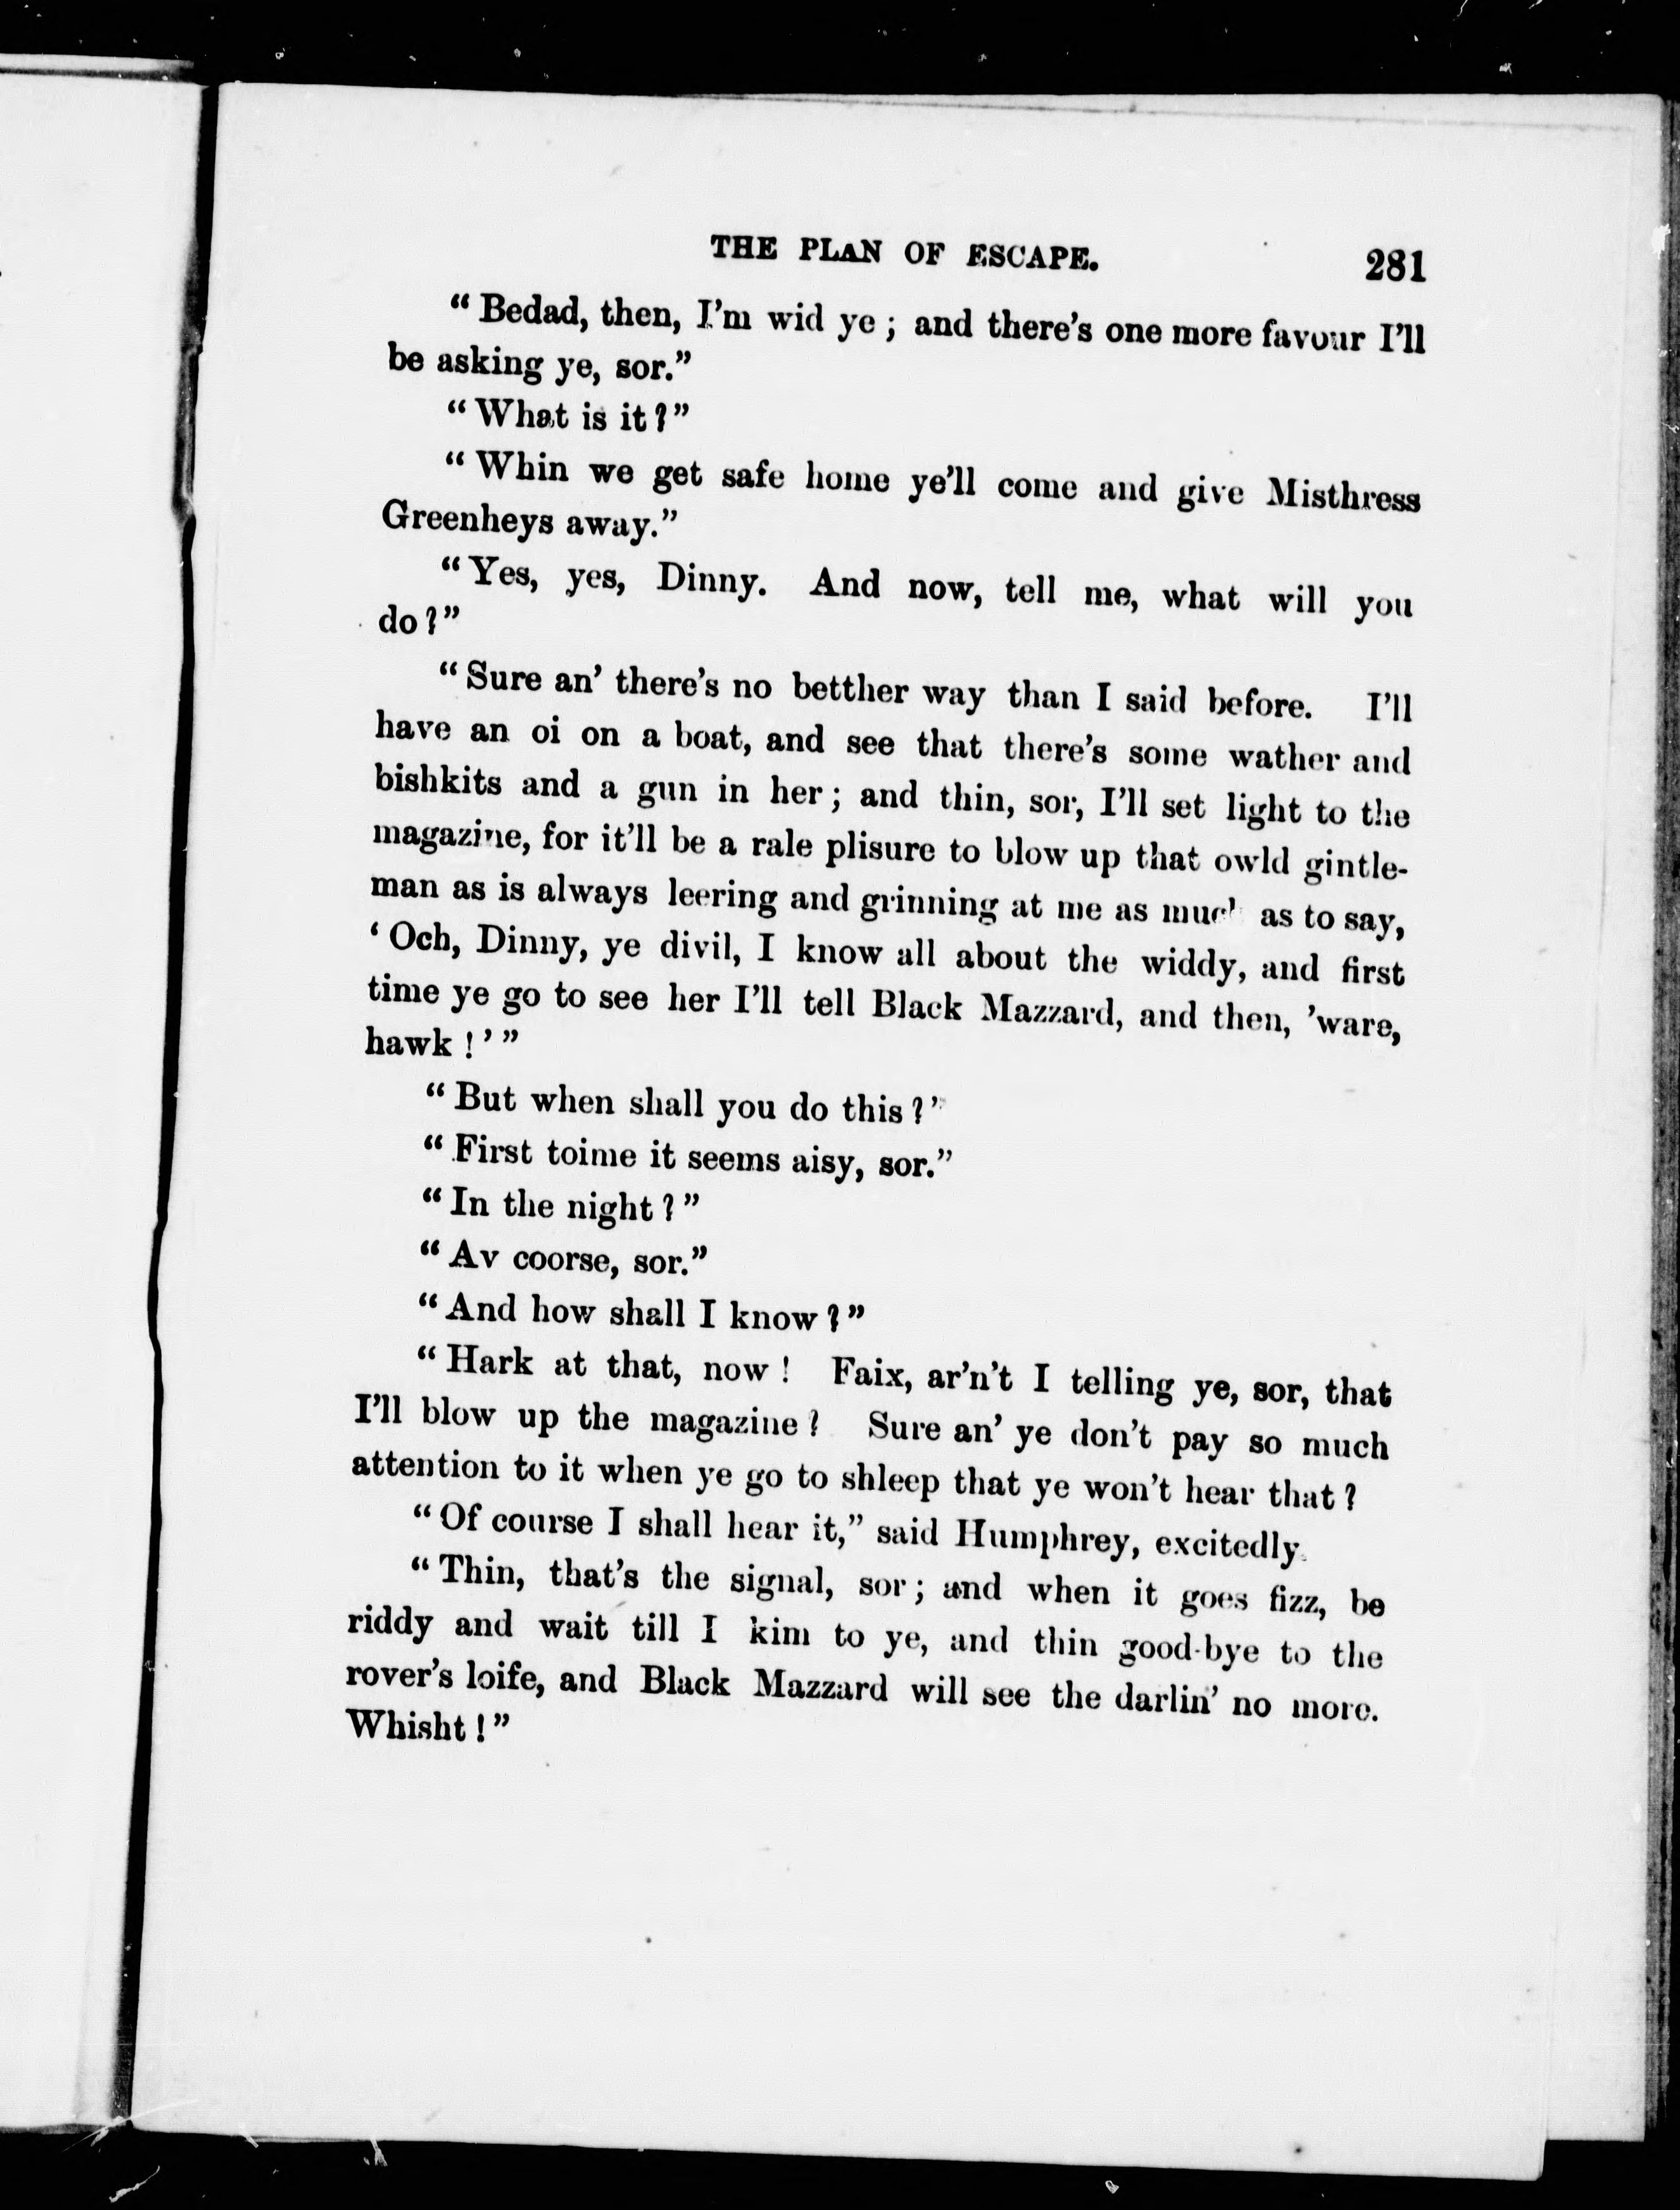 THE PLAN OF ESCAPE. 281
“Bedad, then, I’m wid ye; and there’s one more favour I’ll
be asking ye, sor.”
“What is it?”
“Whin we get safe home ye’ll come and give Misthress
Greenheys away.”
“Yes, yes, Dinny. And now, tell me, what will you
do?”
“Sure an’ there’s no betther way than I said before. I’ll
have an oi on a boat, and see that there’s some wather and
bishkits and a gun in her; and thin, sor, I’ll set light to the
magazine, for it’ll be a rale plisure to blow up that owld gintle-
man as is always leering and grinning at me as much as to say,
‘Och, Dinny, ye divil, I know all about the widdy, and first
time ye go to see her I’ll tell Black Mazzard, and then, ’ware,
hawk!’”
“But when shall you do this?’
“First toime it seems aisy, sor.”
“In the night?”
“Av coorse, sor.”
“And how shall I know?”
“Hark at that, now! Faix, ar’n’t I telling ye, sor, that
I’ll blow up the magazine? Sure an’ ye don’t pay so much
attention to it when ye go to shleep that ye won’t hear that?
“Of course I shall hear it,” said Humphrey, excitedly.
“Thin, that’s the signal, sor; and when it goes fizz, be
riddy and wait till I kim to ye, and thin good-bye to the
rover’s loife, and Black Mazzard will see the darlin’ no more.
Whisht!”